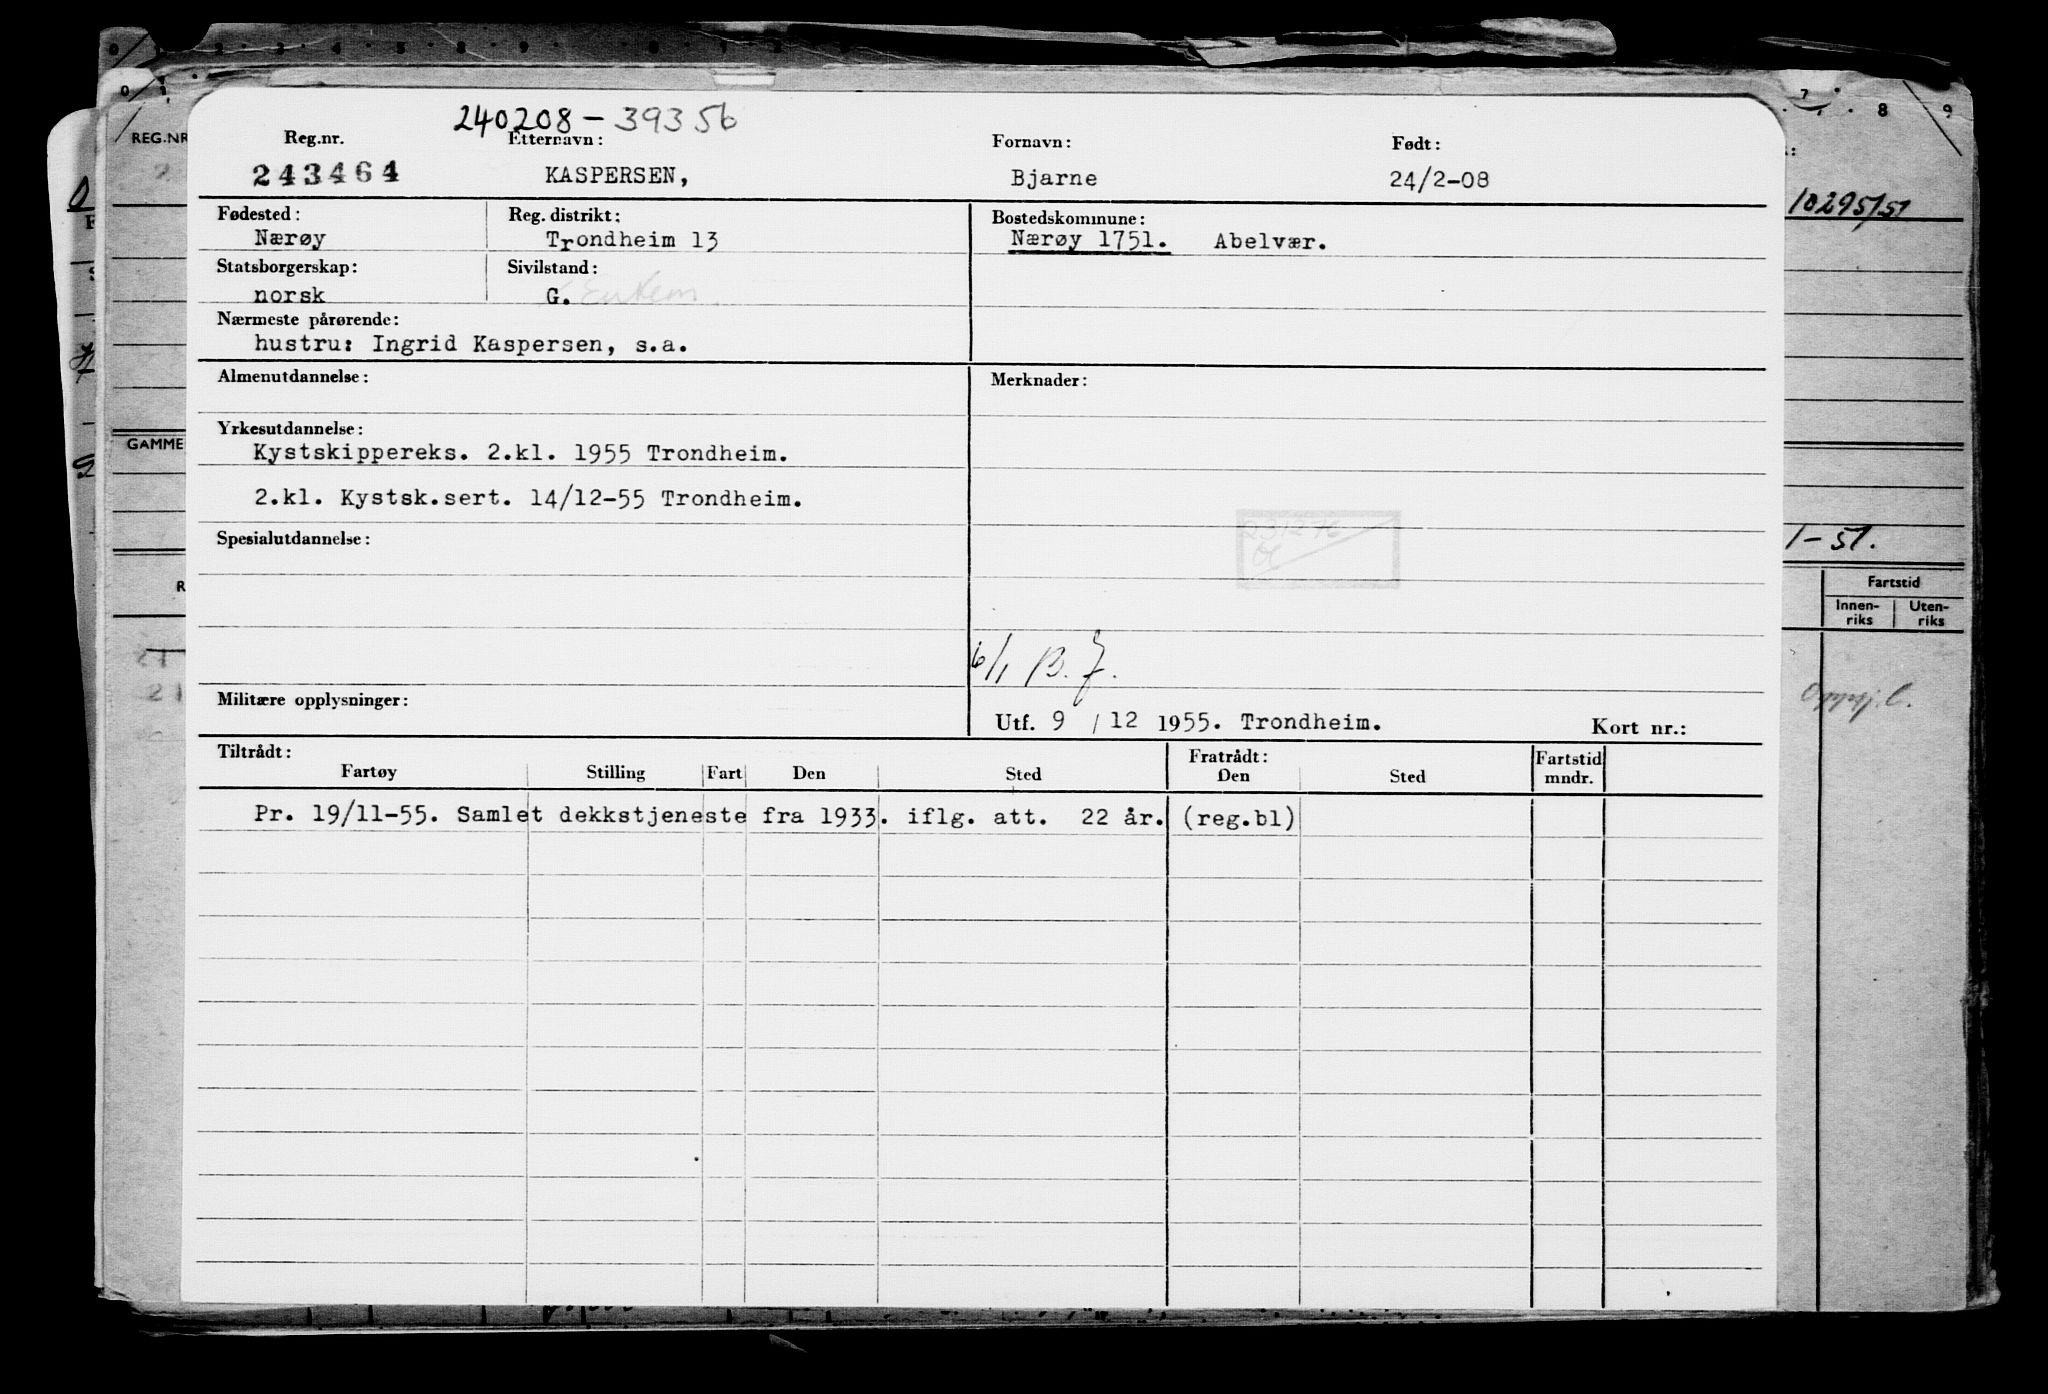 240208-39356
Reg.nr. Etternavn: Fornavn: Født:
243464 KASPERSEN, Bjarne 24/2-08
Fødested: Reg. distrikt: Bostedskommune:
Nærøy Trondheim 13 Nærøy 1751. Abelvær.
Statsborgerskap: Sivilstand:
norsk G.
Nærmeste pårørende:
hustru: Ingrid Kaspersen, s.a.
Almenutdannelse: Merknader:
Yrkesutdannelse:
Kystskippereks. 2.kl. 1955 Trondheim.
2.kl. Kystsk.sert. 14/12-55 Trondheim.
231276
Spesialutdannelse:
6/1 B.J.
Militære opplysninger:
Utf. 9/12 1955. Trondheim. Kort nr.:
Tiltrådt: Fratrådt: Fartstid
Fartøy Stilling Fart Den Sted Den Sted mndr.
Pr. 19/11-55. Samlet dekkstjeneste fra 1933. iflg. att. 22 år. (reg.bl)
REG.NR
GAMME
10295/51
1-51.
Fartstid
Innen- Uten-
riks riks